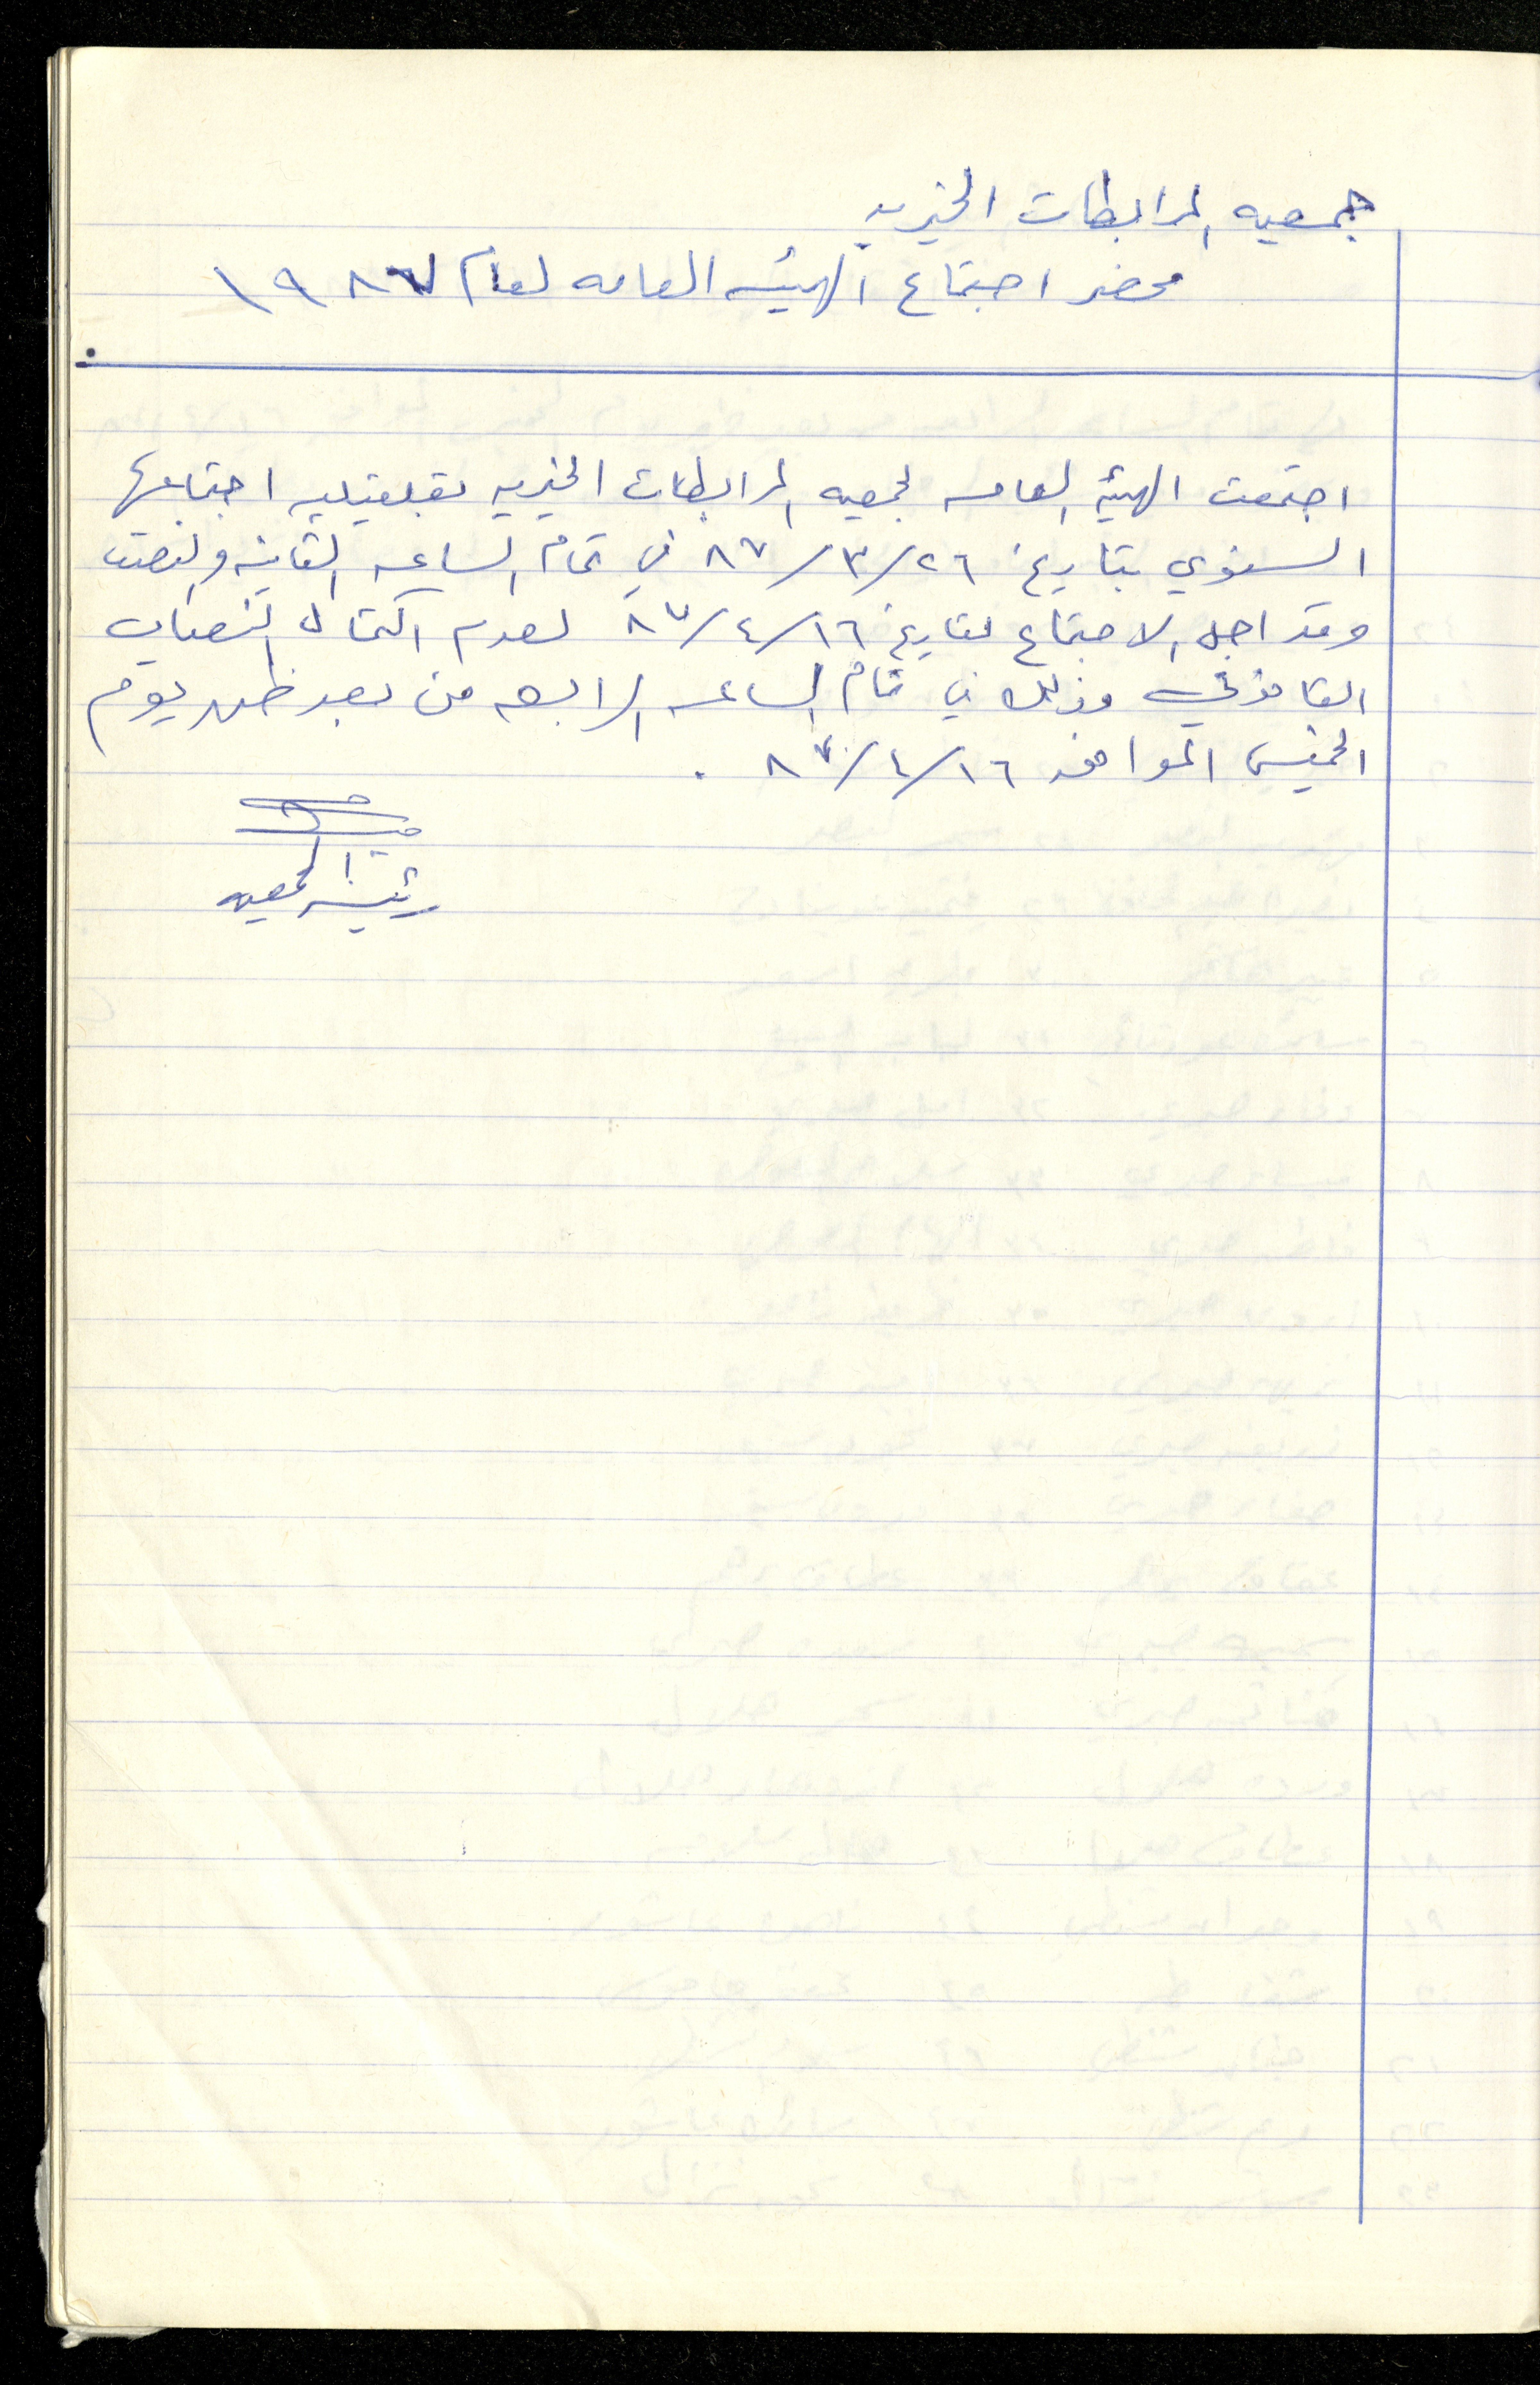 جمعيه المرابطات الخيريه
محضر اجتماع الهيئه العامه لعام ١٩٨٧
اجتمعت الهيئه العامه لجمعيه المرابطات الخيريه بقلقيليه اجتماعها
السنوي بتاريخ ٢٦/٣/٨٧ في تمام الساعه الثانيه والنصف
وقد اجل الاجتماع لتاريخ ١٦/٤/٨٧ لعدم اكتمال النصاب
القانوني وذلك في تمام الساعه الرابعه من بعد ظهر يوم
الخميس الموافق ١٦/٤/٨٧ .
رئيسة الجمعيه